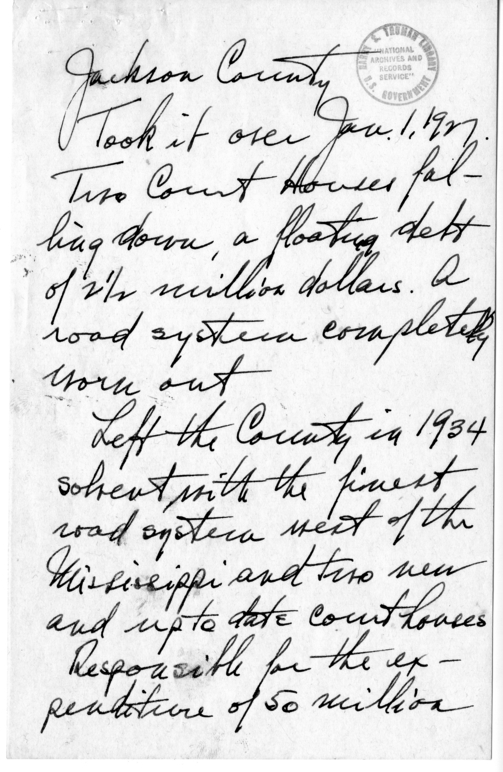 HARRY S. TRUMAN LIBRARY
"NATIONAL
ARCHIVES AND
RECORDS
SERVICE"
U.S. GOVERNMENT
Jackson County
Took it over Jan. 1, 1927.
Two Court Houses fal-
ling down, a floating debt
of 2 1/2 million dollars. A
road system completely
worn out
Left the County in 1934
solvent, with the finest
road system west of the
Mississippi and two new
and up to date court houses
Responsible for the ex-
penditure of 50 million